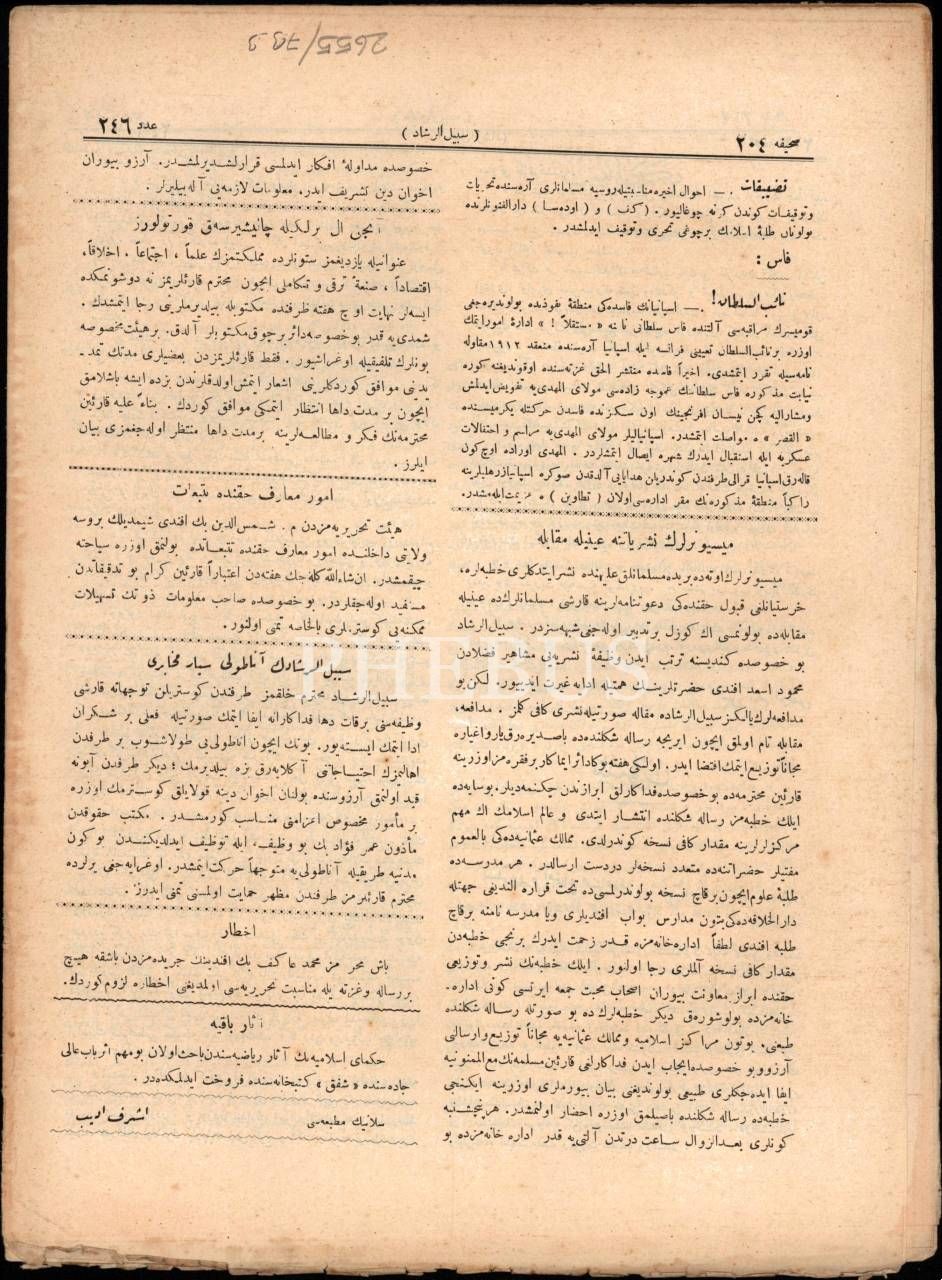 2655/79 و
صحیفه ٢٠٤
( سبیل‌الرشاد )
عدد ٢٤٦
تضییقات . — احوال اخیره مناسبتیله روسیه مسلمانلری آره‌سنده تحریات
و توقیفات کوندن کونه چوغالیور . (کف) و ( اوده‌سا ) دارالفنونلرنده
بولونان طلبهٔ اسلامك برچوغی تحری و توقیف ایدلمشدر.
فاس :
نائب السلطان! . — اسپانیانك فاسده‌کی منطقهٔ نفوذینده بولوندیره‌جغی
قومیسرك مراقبه‌سی آلتنده فاس سلطانی نامنه « مستقلاً ! » ادارهٔ امور ایتمك
اوزره برنائب‌السلطان تعیینی فرانسه ایله اسپانیا آره‌سنده منعقد ١٩١٢ مقاوله
نامه‌سیله تقرر ایتمشدی. اخیراً فاسده منتشر الحق غزته‌سنده اوقوندیغنه کوره
نیابت مذکوره فاس سلطاننك عموجه زاده‌سی مولای المهدی‌یه تفویض ایدلمش
و مشارالیه کچن نیسان افرنجینك اون سکزنده فاسدن حرکتله یکرمیسنده
« القصر » ه مواصلت ایتمشدر. اسپانیالیلر مولای المهدی‌یه مراسم و احتفالات
عسکریه ایله استقبال ایدرك شهره ایصال ایتمشلردر . المهدی اوراده اوچ کون
قاله‌رق اسپانیا قرالی طرفندن کوندریلن هدایایی آلدقدن صوکره اسپانیاز رهلیلرینه
راکباً منطقهٔ مذکوره‌نك مقر اداره‌سی اولان ( تطاوین ) ه عزیمت ایله‌مشدر.
میسیونرلرك نشریاتنه عینیله مقابله
میسیونرلرك اوته‌ده بریده مسلمانلق علیهنده نشر ایتدکلری خطبه‌لره،
خرستیانلغی قبول حقنده‌کی دعوتنامه‌لرینه قارشی مسلمانلرك‌ده عینیله
مقابله‌ده بولونمسی اك کوزل بر تدبیر اوله‌جغی شبهه‌سزدر . سبیل‌الرشاد
بو خصوصده کندیسنه ترتب ایدن وظیفهٔ نشریه‌یی مشاهیر فضلادن
محمود اسعد افندی حضرتلرینك همتیله ادایه غیرت ایدییور. لکن بو
مدافعه‌لرك یالکز سبیل‌الرشاده مقاله صورتیله نشری کافی کلمز . مدافعه،
مقابله تام اولمق ایچون ایریجه رساله شکلنده‌ده باصدیره‌رق یار و اغیاره
مجاناً توزیع ایتمك اقتضا ایدر. اولکی هفته بوکا دائر ایماکار برفقره‌مز اوزرینه
قارئین محترمه‌ده بو خصوصده فداکارلق ابرازندن چکنمه‌دیلر. بوسایه‌ده
ایلك خطبه‌مز رساله شکلنده انتشار ایتدی و عالم اسلامك اك مهم
مرکزلرلرینه مقدار کافی نسخه کوندرلدی. ممالك عثمانیه‌ده‌کی بالعموم
مفتیلر حضراتنه‌ده متعدد نسخه‌لر دردست ارسالدر. هر مدرسه‌ده
طلبهٔ علوم ایچون برقاچ نسخه بولوندرلمسی‌ده تحت قراره النديغی جهتله
دارالخلافه‌ده‌کی بتون مدارس بواب افندیلری ویا مدرسه نامنه برقاچ
طلبه افندی لطفاً اداره‌خانه‌مزه قدر زحمت ایدرك برنجی خطبه‌دن
مقدار کافی نسخه آلملری رجا اولنور . ایلك خطبه‌نك نشر و توزیعی
حقنده ابراز معاونت بیوران اصحاب محبت جمعه ایرتسی کونی اداره‌
خانه‌مزده بولوشه‌رق دیکر خطبه‌لرك‌ده بو صورتله رساله شکلنده
طبعنی. بوتون مراکز اسلامیه و ممالك عثمانیه‌یه مجاناً توزیع وارسالی
آرزو و بو خصوصده ایجاب ایدن فداکارلغی قارئین مسلمه‌نك مع‌الممنونیه
ایفا ایده‌جکلری طبیعی بولوندیغنی بیان بیورملری اوزرینه ایکنجی
خطبه‌ده رساله شکلنده باصیلمق اوزره احضار اولنمشدر. هر پنجشنبه
کونلری بعدالزوال ساعت درتدن آلتی‌یه قدر اداره خانه‌مزده بو
خصوصده مداولهٔ افکار ایدلمسی قرارلشدیرلمشدر. آرزو بیوران
اخوان دین تشریف ایدر، معلومات لازمه‌یی آله‌بیلیرلر .
آنجق ال برلکیله چالیشیرسه‌ق قورتولورز
عنوانیله یازدیغمز ستونلرده مملکتمزك علماً ، اجتماعاً ، اخلاقاً،
اقتصاداً ، صنعةً ترقی و تکاملی ایچون محترم قارئلریمز نه دوشونمکده
ایسه‌لر نهایت اوچ هفته ظرفنده مکتوبله بیلدیرملرینی رجا ایتمشدك.
شمدی‌یه قدر بوخصوصه دائر برچوق مکتوبلر آلدق. برهیئت مخصوصه
بونلرك تلفیقیله اوغراشیور. فقط قارئلریمزدن بعضیلری مدتك تمد‌ـ
یدینی موافق کوردکلرینی اشعار ایتمش اولدقلرندن بزده ایشه باشلامق
ایچون بر مدت داها انتظار ایتمکی موافق کوردك. بناءً علیه قارئین
محترمه‌نك فکر و مطالعه‌لرینه برمدت داها منتظر اوله‌جغمزی بیان
ایلرز .
امور معارف حقنده تتبعات
هیئت تحریریه‌مزدن م . شمس‌الدین بك افندی شیمدیلك بروسه
ولایتی داخلنده امور معارف حقنده تتبعاتده بولنمق اوزره سیاحته
چیقمشدر. ان‌شاءالله کله‌جك هفته‌دن اعتباراً قارئین کرام بو تدقیقاتدن
مستفید اوله‌جقلردر. بوخصوصده صاحب معلومات ذوتك تسهیلات
ممکنه‌یی کوسترملری بالخاصه تمنی اولنور.
سبیل‌الرشادك آناطولی سیار مخابری
سبیل‌الرشاد محترم خلقمز طرفندن کوستریلن توجهاته قارشی
وظیفه‌سنی برقات دها فداکارانه ایفا ایتمك صورتیله فعلی بر شکران
ادا ایتمك ایسته‌یور. بونك ایچون اناطولی‌یی طولاشوب بر طرفدن
اهالیمزك احتیاجاتی آکلایه‌رق بزه بیلدیرمك ؛ دیکر طرفدن آبونه
قید اولنمق آرزوسنده بولنان اخوان دینه قولایلق کوسترمك اوزره
بر مأمور مخصوص اعزامنی مناسب کورمشدر. مکتب حقوقدن
مأذون عمر فؤاد بك بو وظیفه ایله توظیف ایدلدیکندن بو کون
مدنیه طریقیله آناطولی‌یه متوجهاً حرکت ایتمشدر. اوغرایه‌جغی یرلرده
محترم قارئلرمز طرفندن مظهر حمایت اولمسنی تمنی ایدرز .
اخطار
باش محررمز محمد عاکف بك افندینك جریده‌مزدن باشقه هیچ
بررساله و غزته یله مناسبت تحریریه‌سی اولمدیغنی اخطاره لزوم کوردك.
آثار باقیه
حکمای اسلامیه‌نك آثار ریاضیه‌سندن باحث اولان بومهم اثر باب‌عالی
جاده‌سنده « شفق » کتبخانه‌سنده فروخت ایدلمکده‌در .
سلانیك مطبعه‌سی
اشرف ادیب